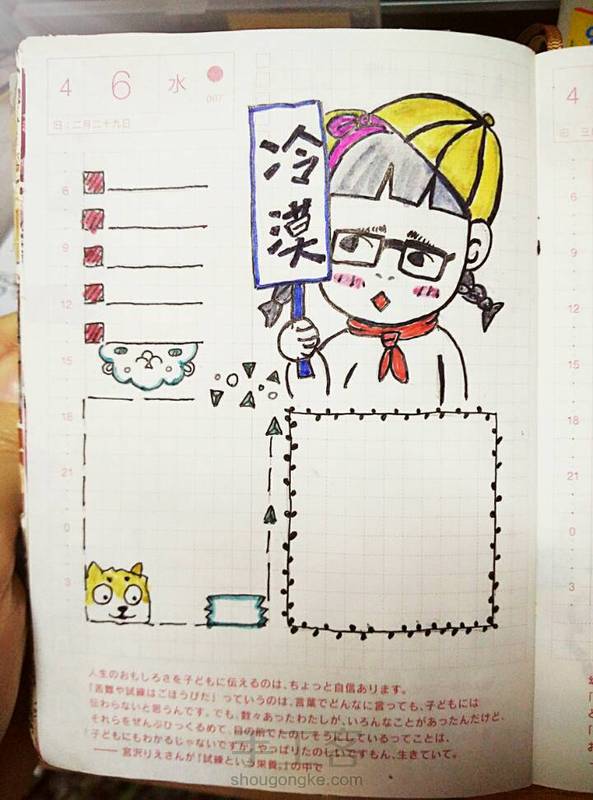 4 6 水
旧:二月二十九日
007
冷
漠
6
9
12
15
18
21
0
3
人生のおもしろさを子どもに伝えるのは、ちょっと自信あります。
「苦難や試練はごほうびだ」っていうのは、言葉でどんなに言っても、子どもには
伝わらないと思うんです。でも、数々あったわたしが、いろんなことがあったんだけど、
それらをぜんぶひっくるめて、目の前でたのしそうにしているってことは、
「子どもにもわかるじゃないですか。やっぱりたのしいですもん、生きていて。
——宮沢りえさんが『試練という栄養。』の中で
shougongke.com
4
6
9
12
15
18
21
0
3